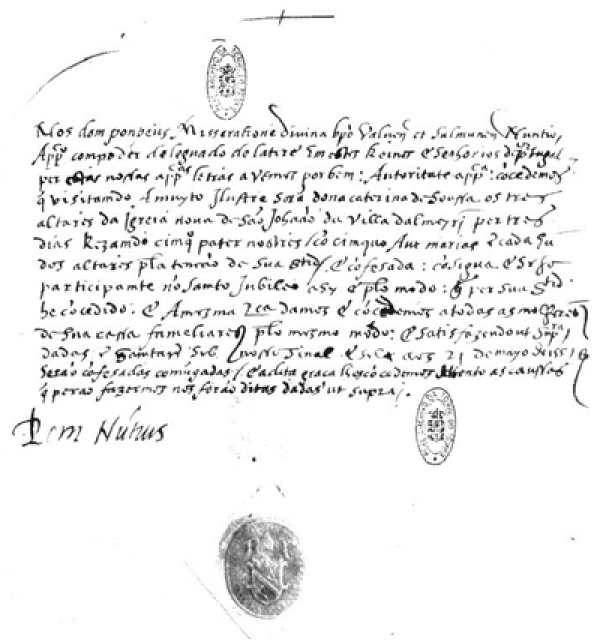 Nos dom ponpeius Misseratione divina bpō Valueñ et Sulmuneñ Nuntio
App.co com poder de leguado de latere Em estes Reinos e Senhorios de portugal
per estas nossas app.cas letras avemos por bem: Autoritate app.ca: cōcedemos
q̃ visitamdo A muyto Ilustre Sorã dona caterina de Soussa os tres
altares da Igreia nova de São Johaão da villa dalmeyrĩ per tres
dias Rezamdo cimq̃o pater nostres cō cimquo Ave marias ẽ cada hũ
dos altares pla tenção de Sua Stid.e e cōfesada: cōsigua e seja
participamte no Samto Jubileo asy e plo modo: q̃ per Sua Stid.e
he cōcedido: e A mesma damos e cōcedemos a todas as molheres
de sua cassa fameliares plo mesmo modo: e satisfazendo ut supra
dadas ẽ Santarẽ Sub nosso Sinal e selo aos 21 de mayo de 1551
Serão cōfesadas comũgadas e a dita graca lhes cōcedemos atento as caussas
q̃ pera o fazermos nos forão ditas dadas ut supra
Pom Nũtius